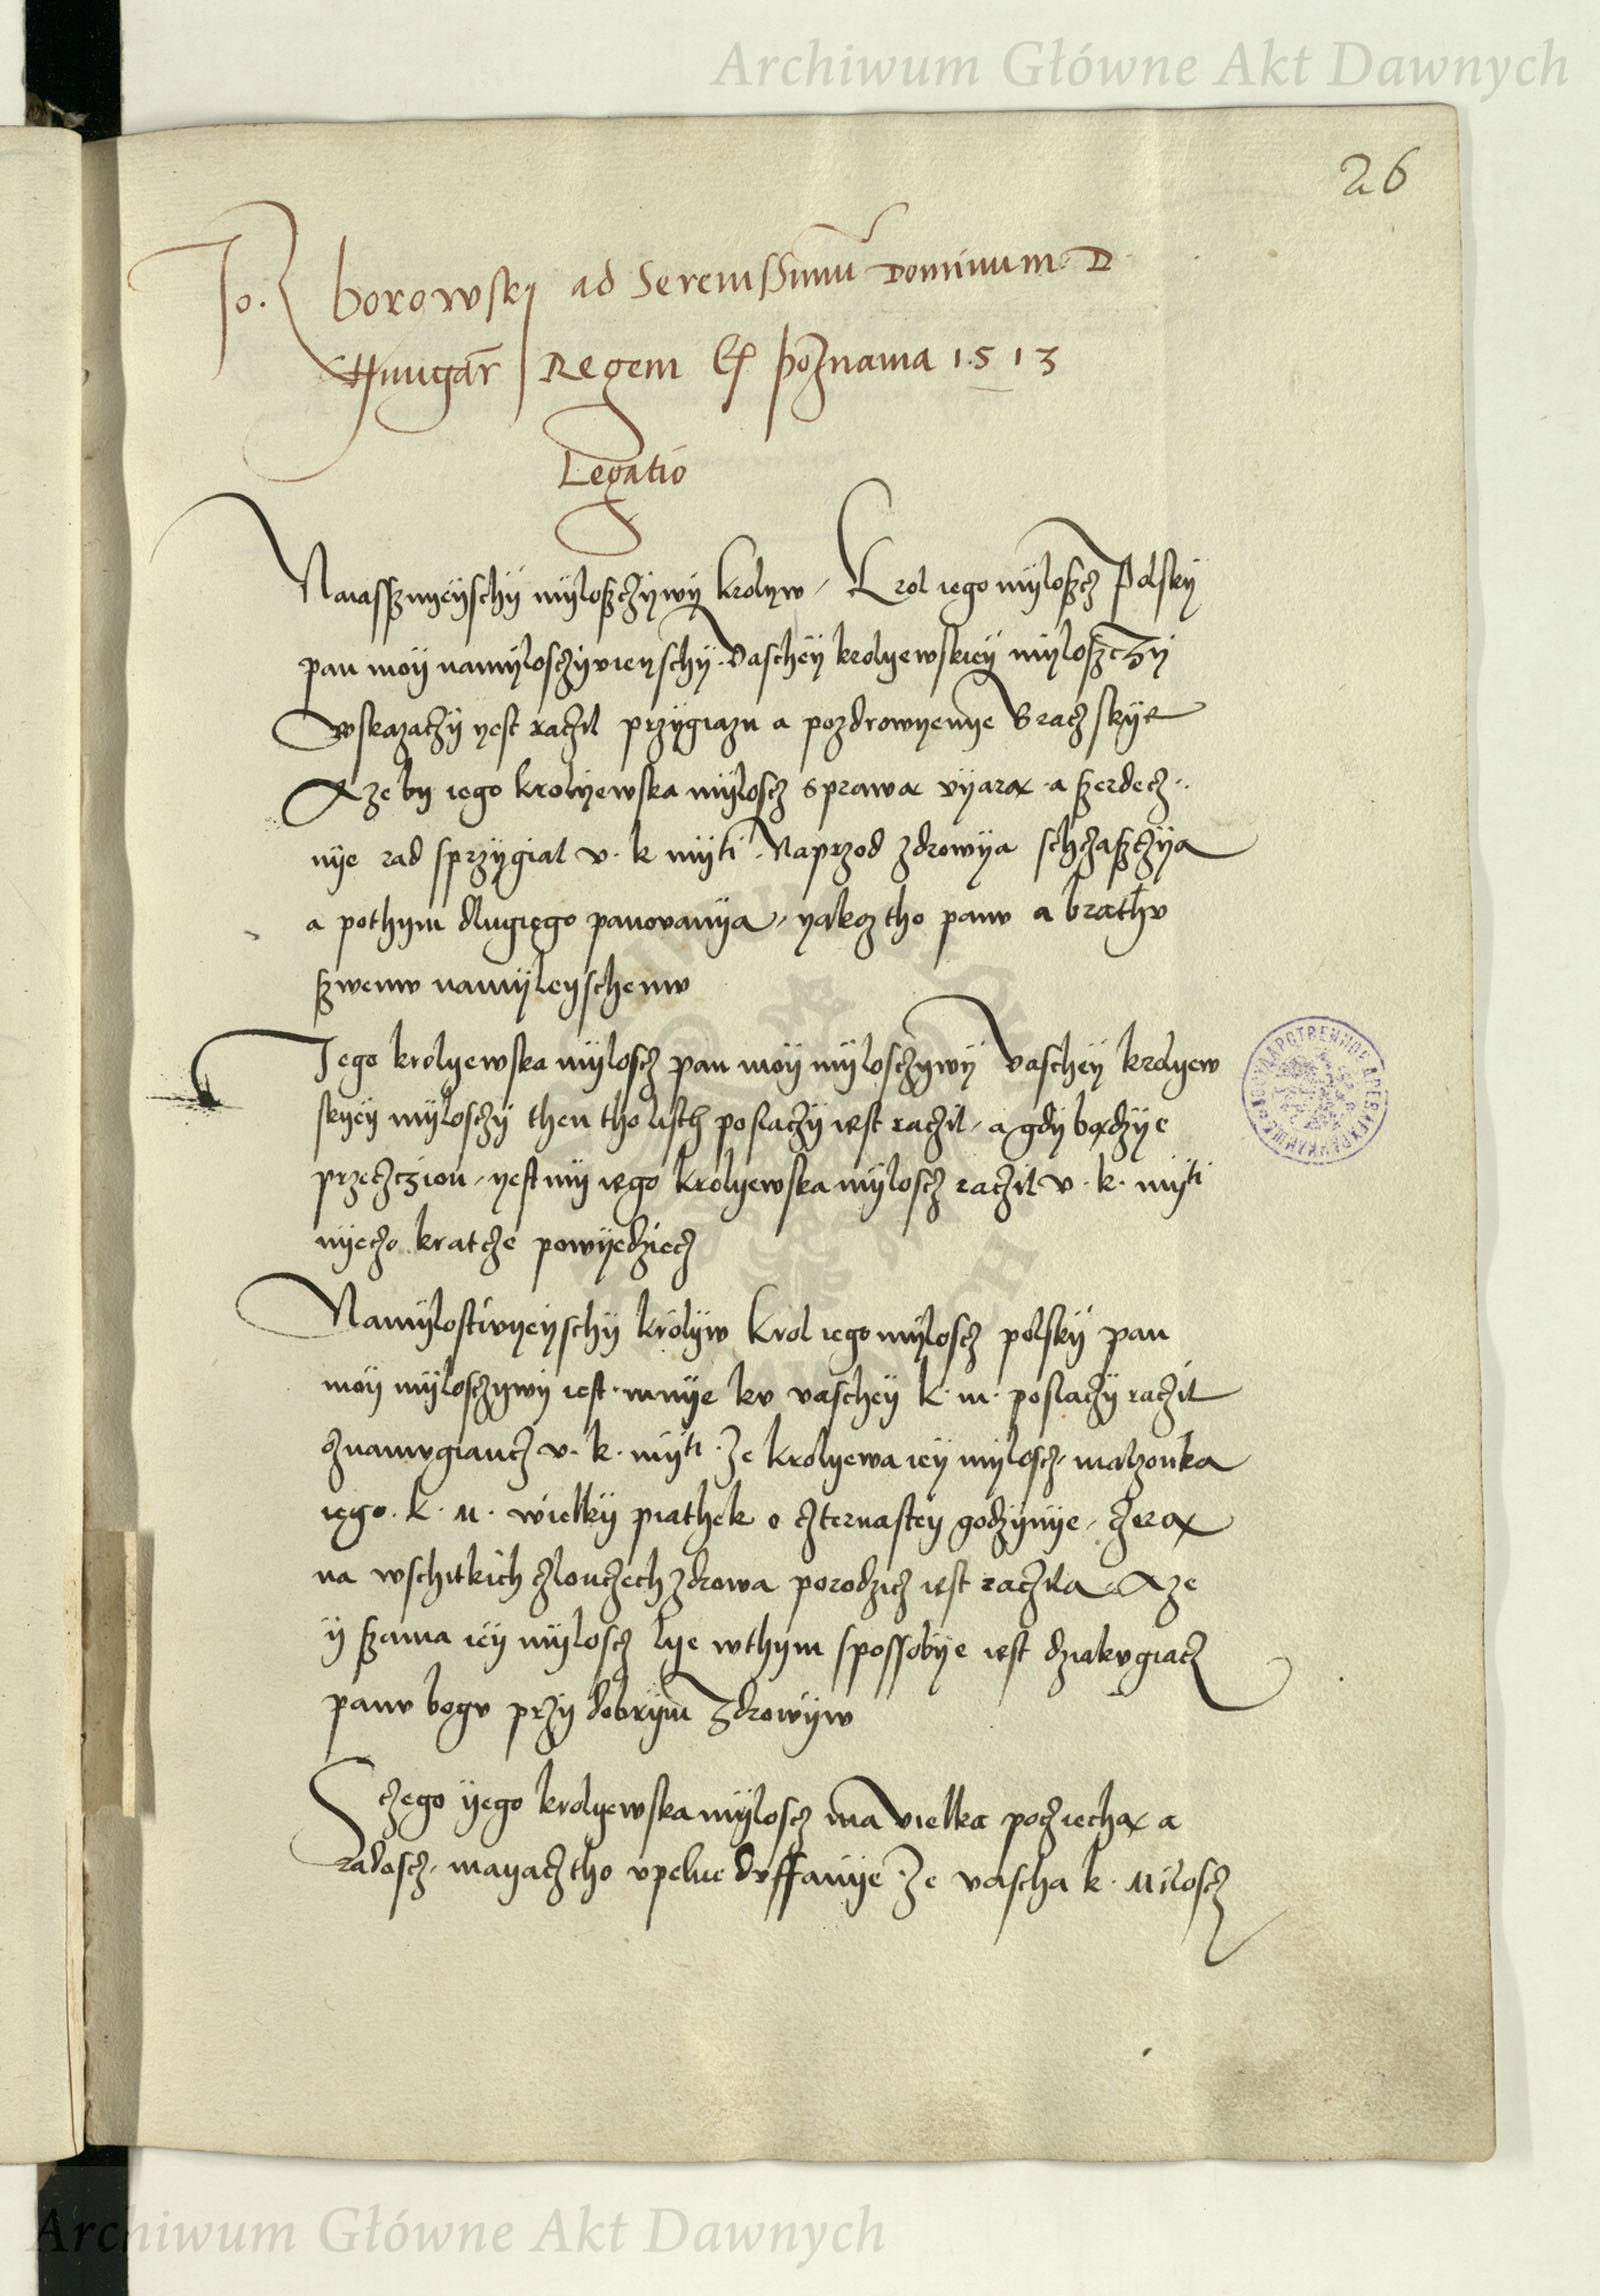 Archiwum Główne Akt Dawnych
26
Jo. borowskj ad Serenissimu Dominum D
Hungar Regem Ex poznania 1513
Legatio
Naiassznyeyschÿ mÿlosczÿwÿ krolyw / Krol iego mÿloscz Polskÿ
pan moÿ namÿlosczÿvieyschÿ Vaschey krolyewskiey mÿlosczÿ
wskazaczÿ yest raczil przÿgiazn a pozdrowyenye braczskÿe
A ze by iego krolÿewska mÿloscz sprawa vÿarα a szerdecz
nÿe rad sprzÿgial v. k mÿti Naprzod zdrowÿa schczasczÿa
a pothym dlugiego panovanÿa / yakoz tho panv a brathv
szwemv namÿleyschemv
Iego krolyewska mÿloscz pan moÿ mÿlosczÿwÿ Vaschey krolyew
skyey mÿlosczÿ then tho listh poslaczÿ iest raczil / a gdÿ bαdzÿe
przeczczion / yest mÿ iego krolyewska mÿloscz raczil v. k. mÿti
nÿeczo kratcze powÿedziecz
Namÿlostivyeyschÿ krolÿw krol iego mÿloscz polskÿ pan
moÿ mÿlosczÿwÿ iest mnÿe kv vaschey k. m. poslaczÿ raczil
znamvgiancz v. k. mÿti ze krolyewa iey mÿloscz / malzonka
iego. k. M. wielkÿ piathek o czternastey godzÿnÿe / czerα
na wschitkich czlonczech zdrowa porodzicz iest raczila A ze
ÿ szama iey mÿloscz lye wthym spossobÿe iest dziakvgiacz
panv bogv przÿ dobrÿm zdrowÿw
Sczego ÿego krolyewska mÿloscz ma vielka pocziechα a
radoscz / mayacz tho vpelne dvffanÿe ze vascha k. Miloscz
Archiwum Główne Akt Dawnych